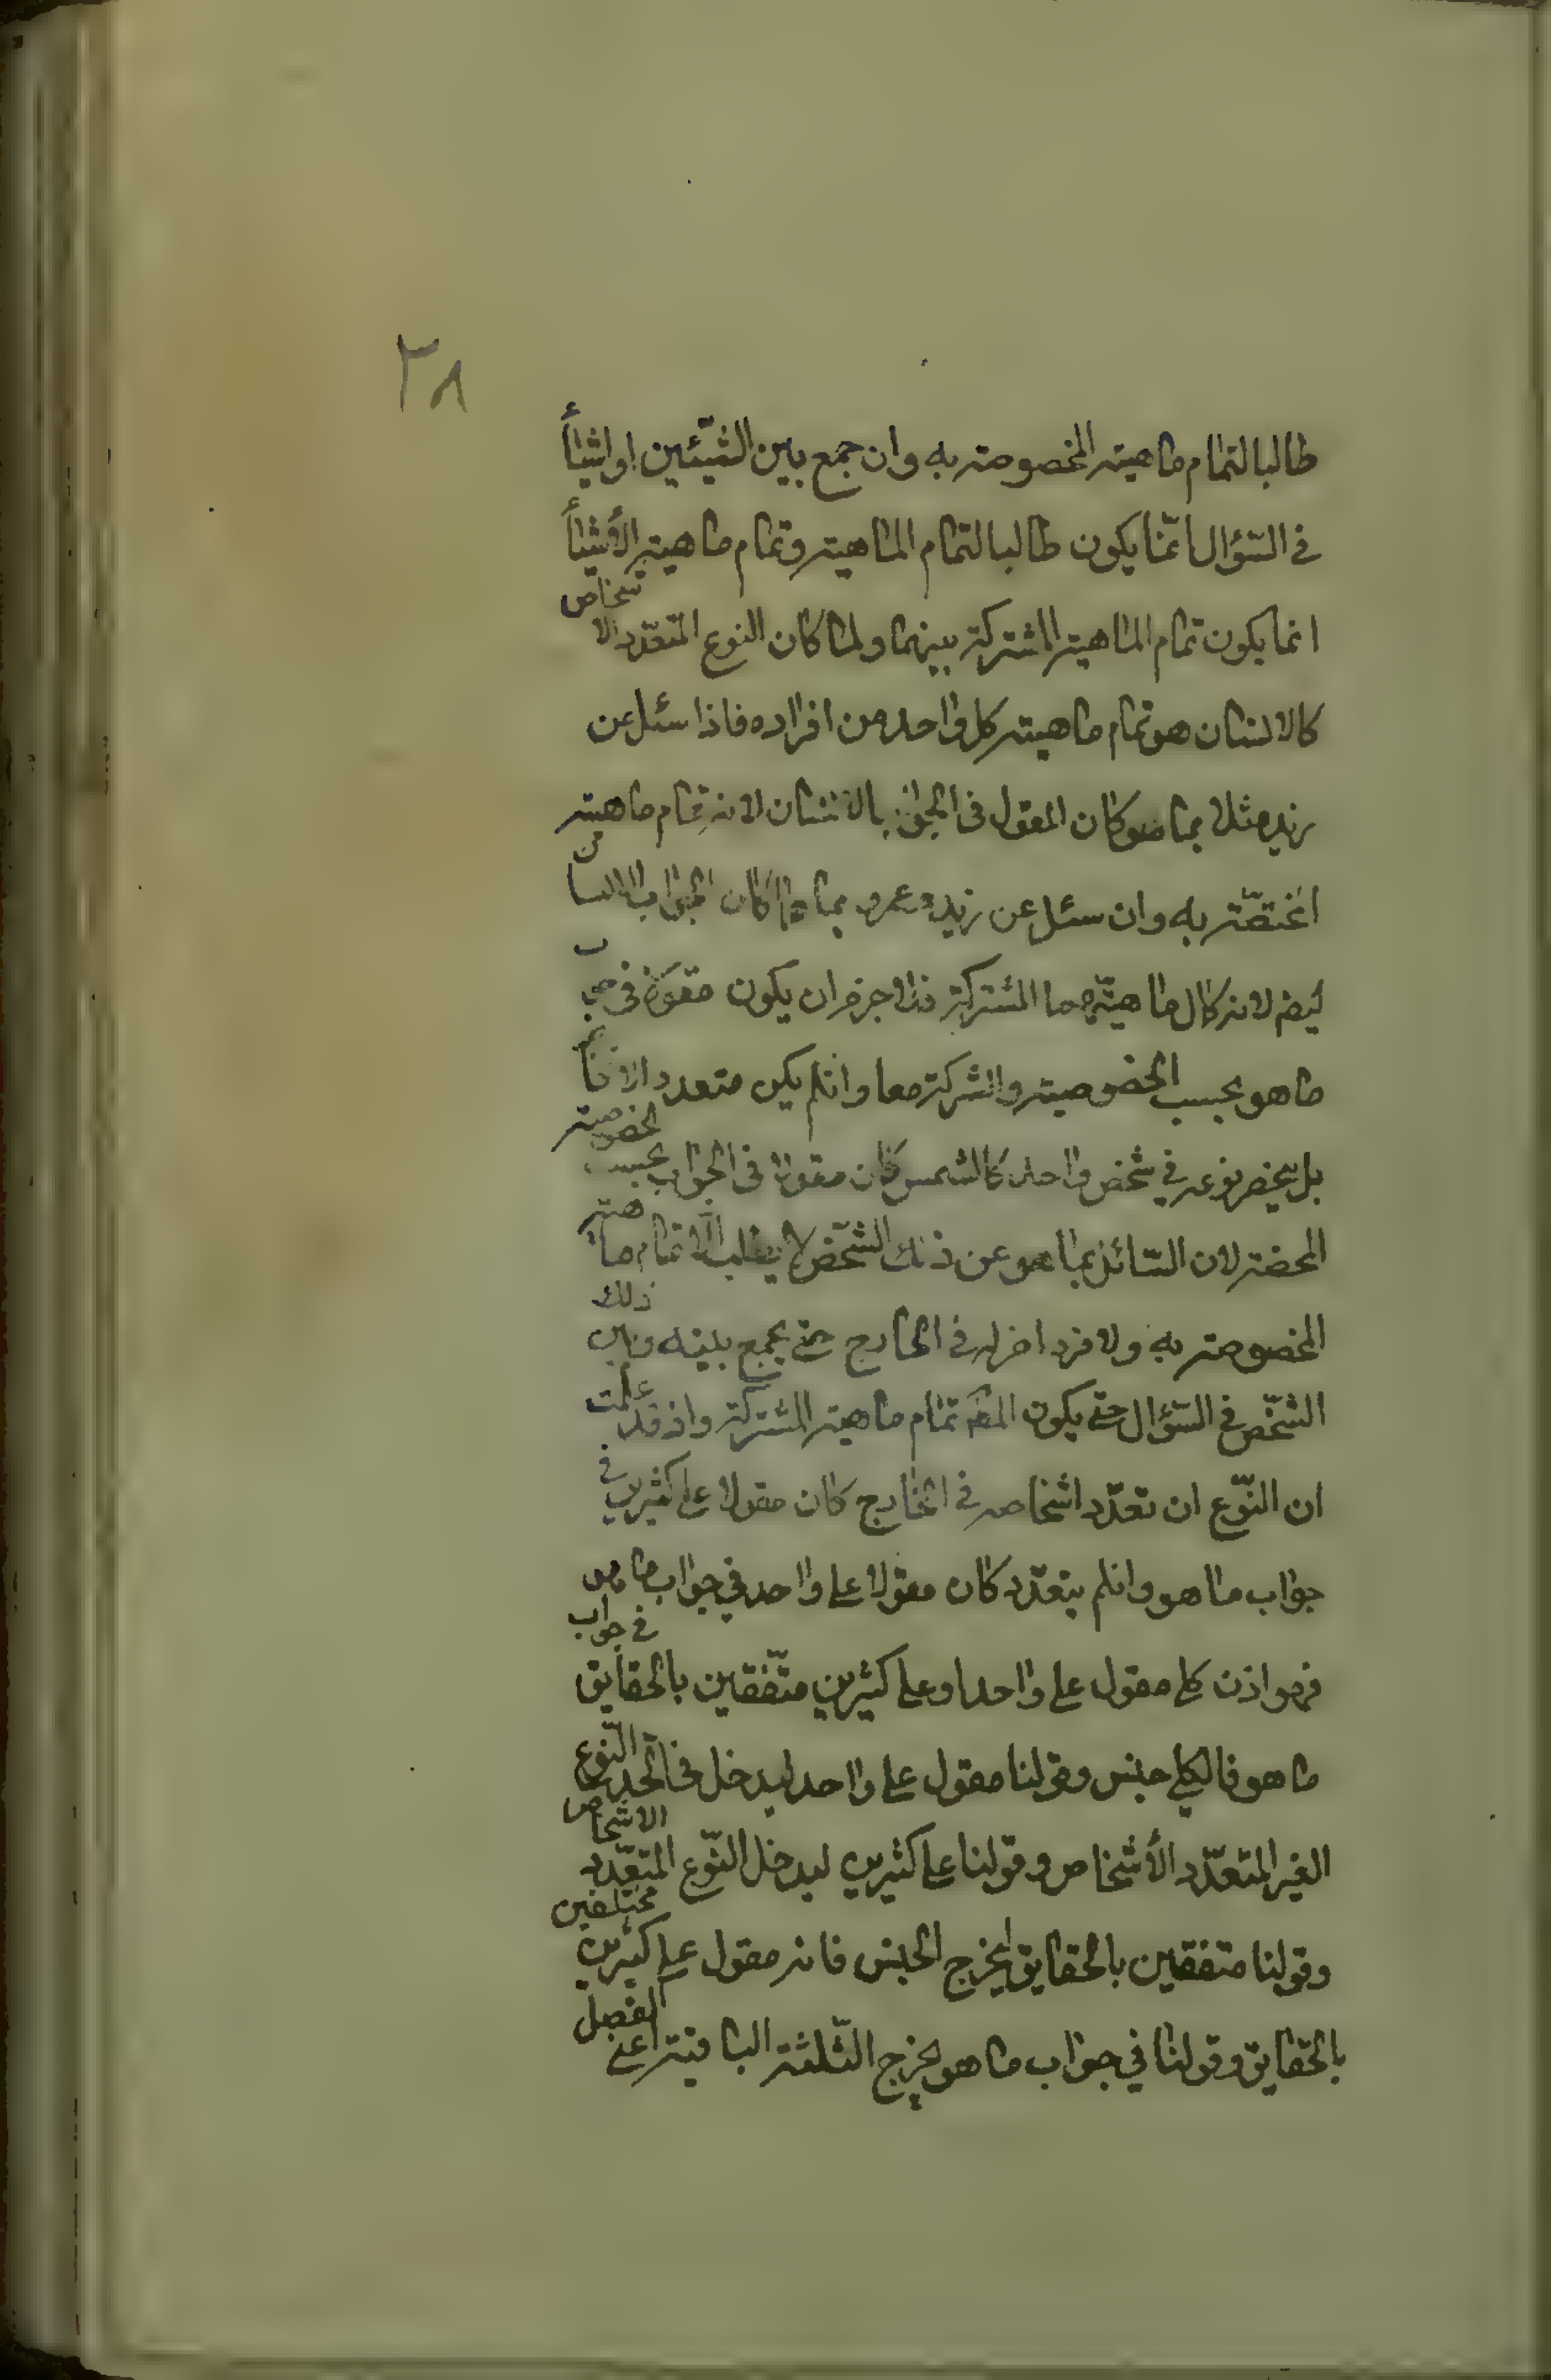 ٣٨
طالبا لتمام ماهيته المخصوصة به وان جمع بين الشّيئين او اشيأ
فى السّؤال انّما يكون طالبا لتمام الماهية وتمام ماهية الأشيأ
انما يكون تمام الماهية المشتركة بينهما ولما كان النوع المتعدّد الاشخاص
كالانسان هو تمام ماهية كل واحد من افراده فاذا سئل عن
زيد مثلا بما هو كان المقول فى الجواب الانسان لانه تمام ماهيته
المختصّة به وان سئل عن زيد وعمرو بما هما كان الجواب الانسان
ايضا لانه كمال ماهيّتهما المشتركة فلا جرم ان يكون مقولا فى جواب
ما هو بحسب الخصوصية والشركة معا وانلم يكن متعدد الاشخاص
بل ينحصر نوعه في شخص واحد كالشمس كان مقولا فى الجواب بحسب الخصوصية
المحضة لان السّائل بما هو عن ذلك الشّخص لا يطلب الّا تمام ماهيته
المخصوصة به ولا فرد اخر له فى الخارج حتى يجمع بينه وبين ذلك
الشّخص فى السّؤال حتى يكون المقم تمام ماهية المشتركة واذ قد علمت
ان النّوع ان تعدّد اشخاصه فى الخارج كان مقولا على كثيرين فى
جواب ما هو وانلم يتعدّد كان مقولا على واحد في جواب ما هو
فهو اذن كلى مقول على واحد او على كثيرين متّفقين بالحقايق فى جواب
ما هو فالكلى جنس وقولنا مقول على واحد ليدخل فى الحد النّوع
الغير المتعدّد الأشخاص وقولنا على كثيرين ليدخل النّوع المتعدّد الاشخاص
وقولنا متفقين بالحقايق ليخرج الجنس فانه مقول على كثيرين مختلفين
بالحقايق وقولنا في جواب ما هو يخرج الثّلثة الباقية اعنى الفصل